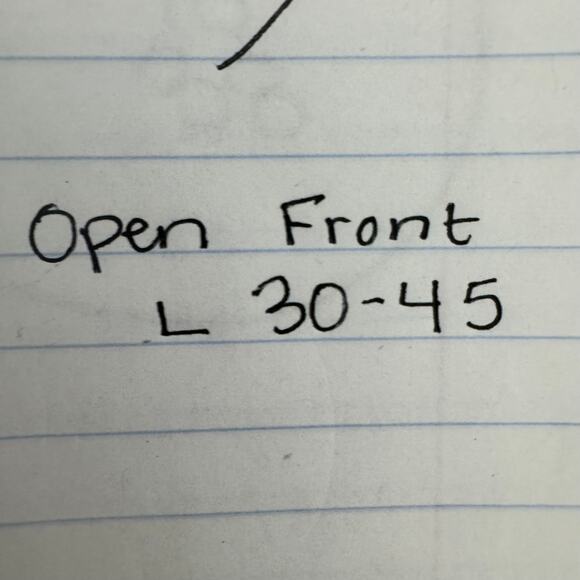 Open Front
L 30-45